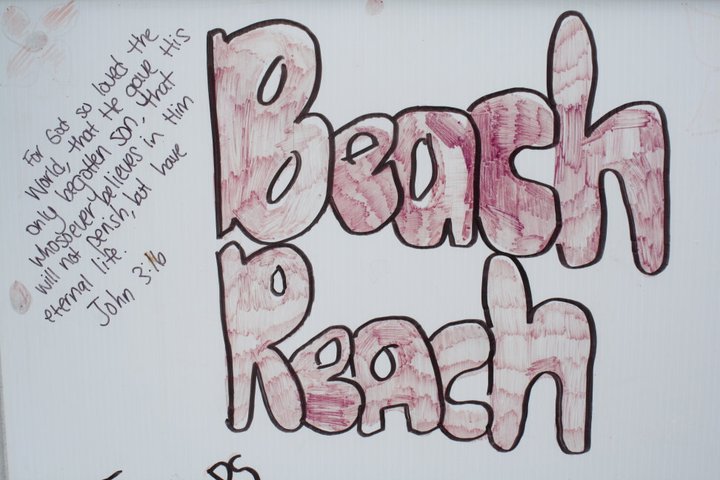 For God so loved the
World, that He gave His
only begotten son, that
whosoever believes in Him
will not perish, but have
eternal life.
John 3:16
Beach
Reach